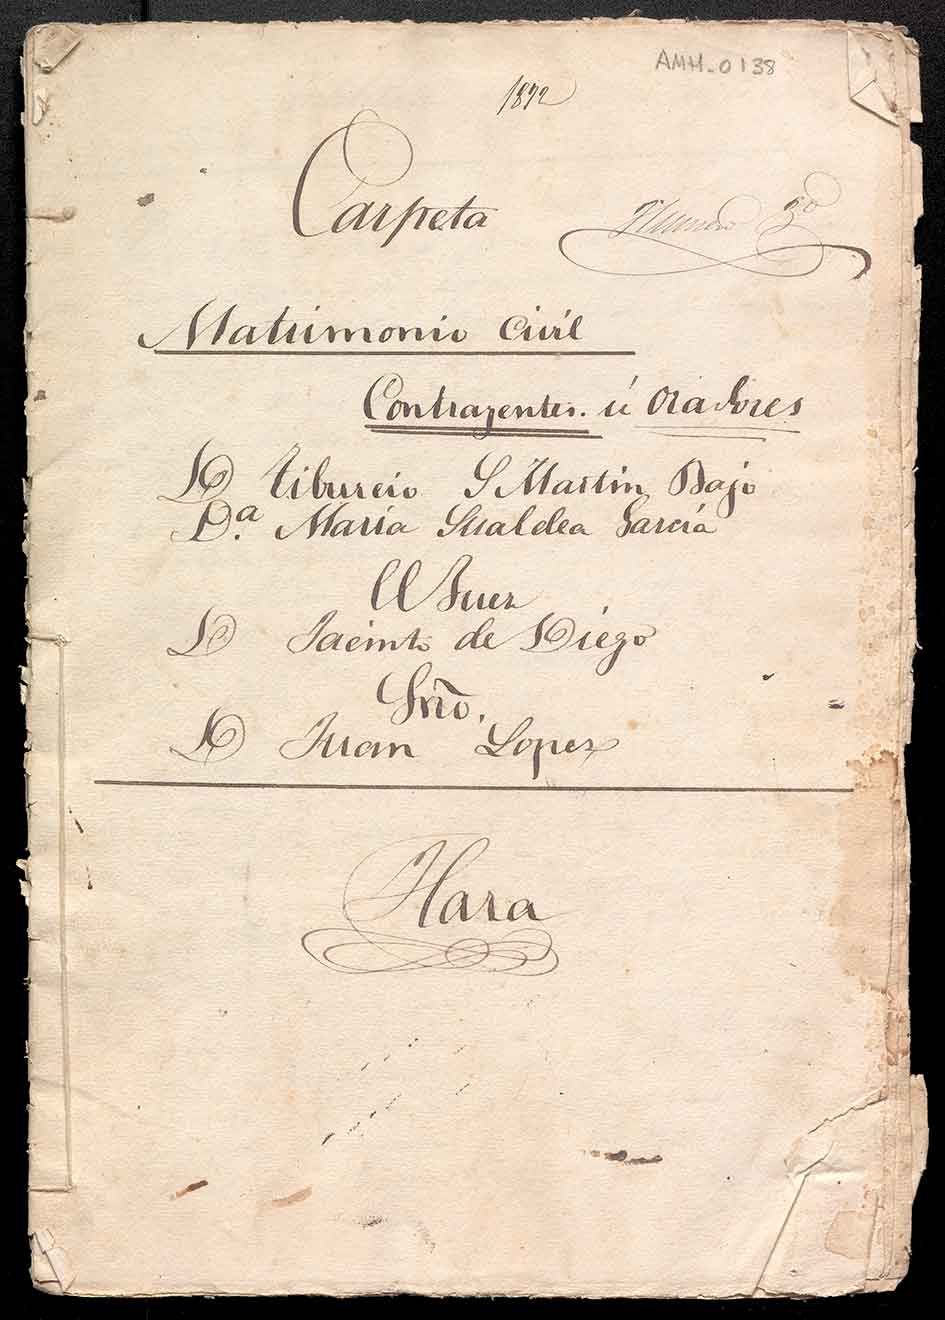 AMH-0138
1872
Carpeta
Numero 3º
Matrimonio Civil
Contrayentes. ú Oradores
D Tiburcio S Martin Bajo
D.ª María Gualdea Garcia
El Juez
D Jacinto de Diego
Srio.
D Juan Lopez
Hara